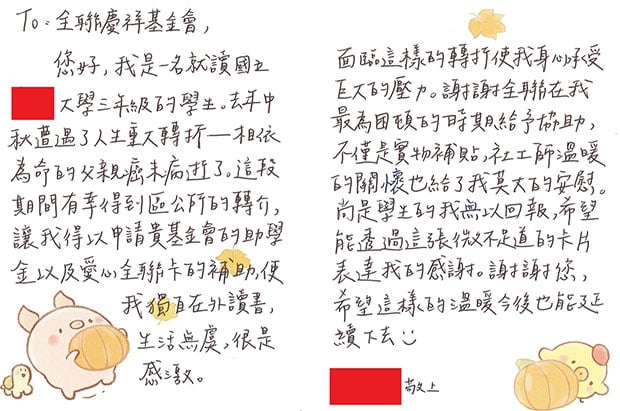 To: 全聯慶祥基金會,
您好,我是一名就讀國立
大學三年級的學生。去年中
秋遭遇了人生重大轉折——相依
為命的父親癌末病逝了。這段
期間有幸得到區公所的轉介,
讓我得以申請貴基金會的助學
金以及愛心全聯卡的補助,使
我獨自在外讀書,
生活無虞,很是
感激。
面臨這樣的轉折使我身心承受
巨大的壓力。謝謝全聯在我
最為困頓的時期給予協助,
不僅是實物補貼,社工師溫暖
的關懷也給了我莫大的安慰。
尚是學生的我無以回報,希望
能透過這張微不足道的卡片
表達我的感謝。謝謝您,
希望這樣的溫暖今後也能延
續下去
敬上